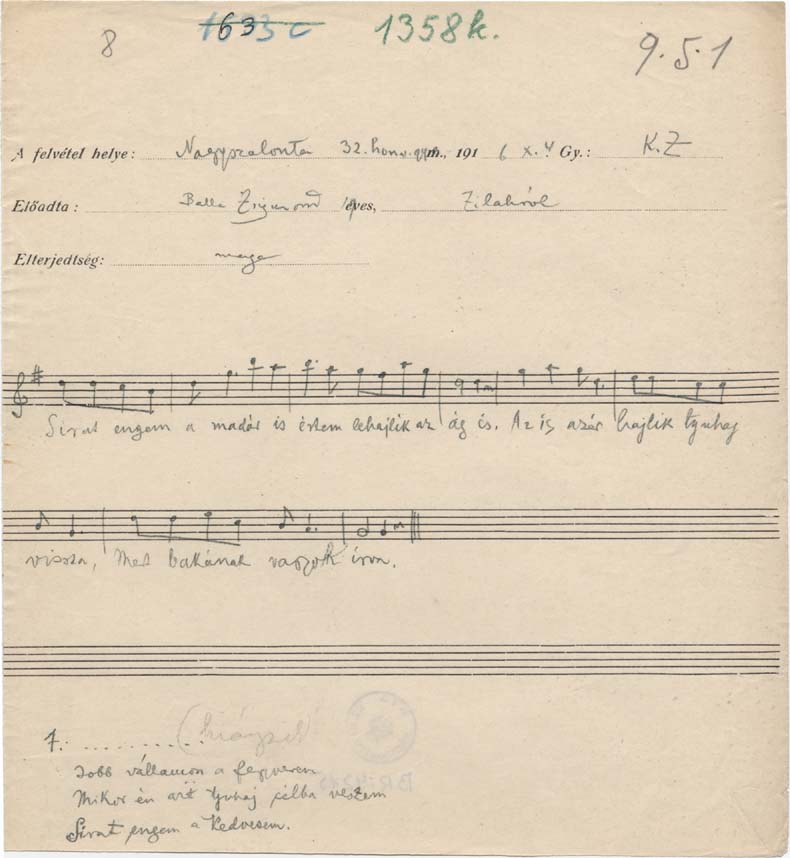 8 1633 c 1358k. 9.5.1
A felvétel helye: Nagyszalonta 32. honv. gy. m., 191 6 X. 4 Gy.: K.Z
Előadta: Balla Zsigmond 19 éves, Zilahról
Elterjedtség: maga
Sirat engem a madár is értem lehajlik az ág is. Az is azér hajlik tyuhaj
vissza, Mert bakának vagyok írva.
7. .......... (hiányzik)
Jobb vállamon a fegyverem
Mikor én azt tyuhaj célba veszem
Sirat engem a Kedvesem.